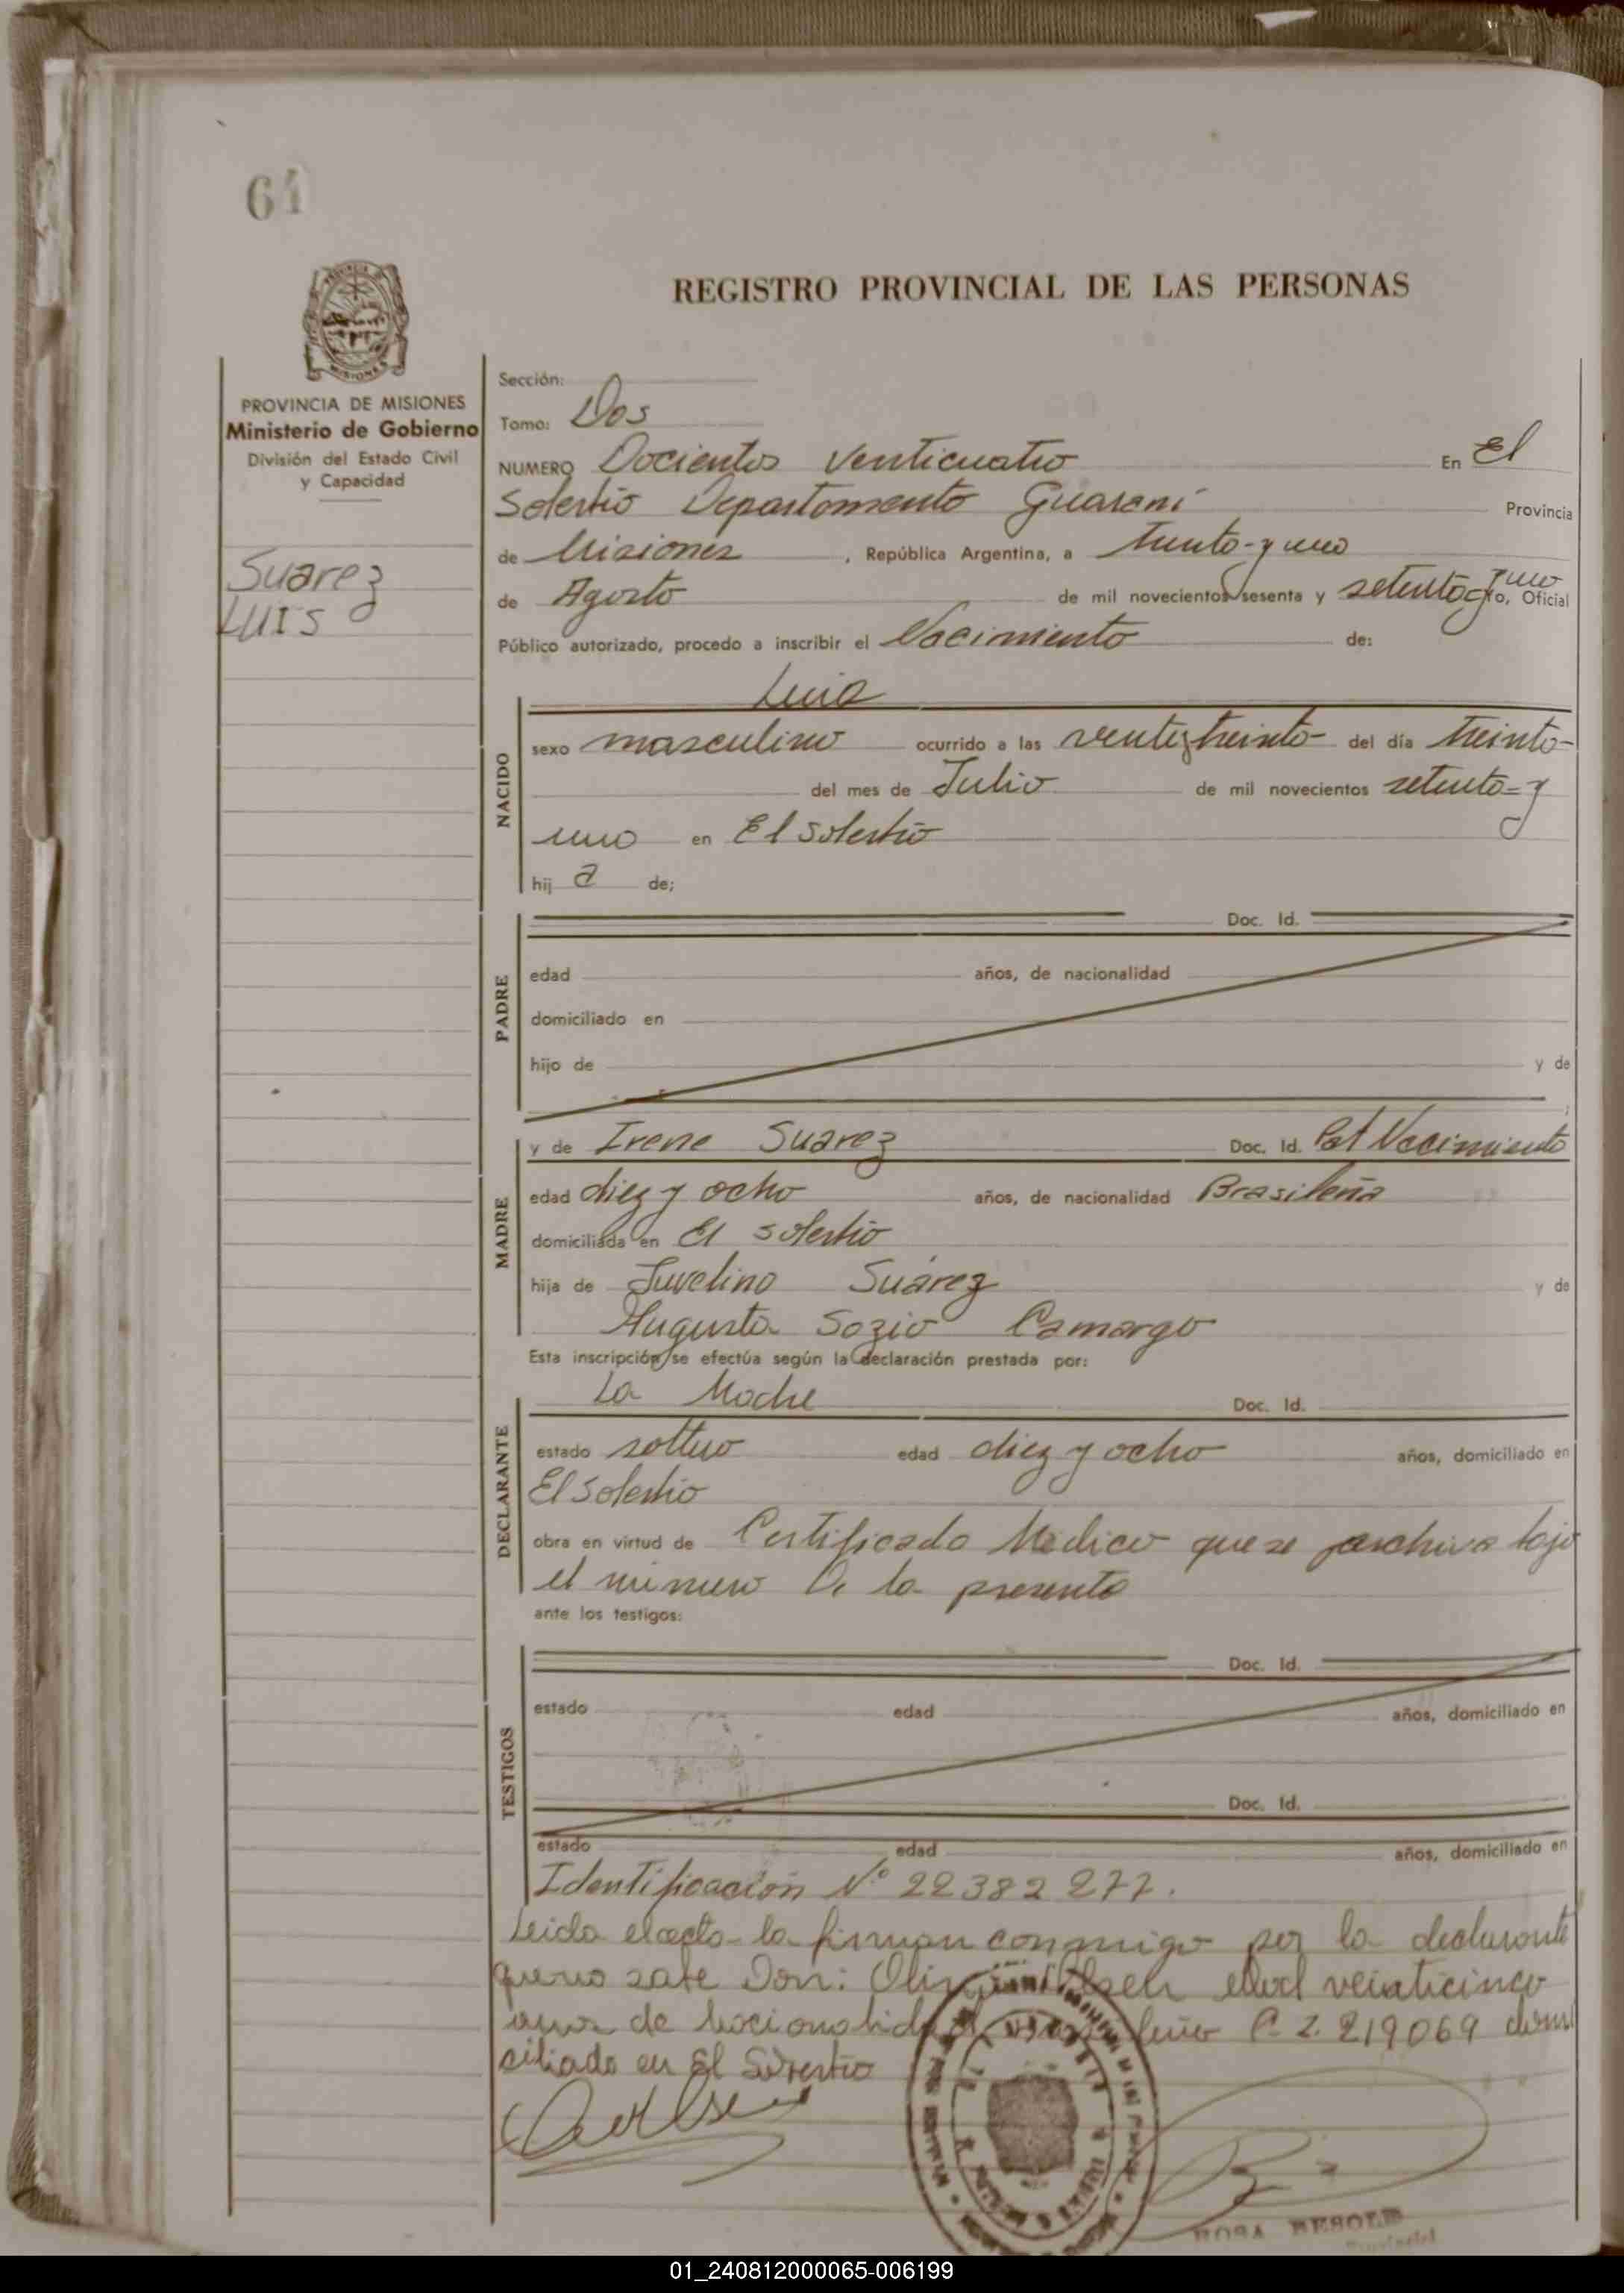 64
REGISTRO PROVINCIAL DE LAS PERSONAS
PROVINCIA DE MISIONES
Ministerio de Gobierno
División del Estado Civil
y Capacidad
Suarez
LUIS
Sección:
Tomo: Dos
NUMERO Docientos Venticuatro En El
Soberbio Departamento Guarani Provincia
de Misiones, República Argentina, a treinta y uno
de Agosto de mil novecientos sesenta y setenta y uno, Oficial
Público autorizado, procedo a inscribir el Nacimiento de:
NACIDO
Luis
sexo masculino ocurrido a las veinte y treinta del día treinta
del mes de Julio de mil novecientos setenta y
uno en El Soberbio
hij a de;
PADRE
Doc. Id.
edad años, de nacionalidad
domiciliado en
hijo de y de
MADRE
y de Irene Suarez Doc. Id. Nacimiento
edad diez y ocho años, de nacionalidad Brasileña
domiciliada en El Soberbio
hija de Juvelino Suárez y de
Augusta Camargo
Esta inscripción se efectúa según la declaración prestada por:
DECLARANTE
La Madre Doc. Id.
estado edad diez y ocho años, domiciliado en
El Soberbio
obra en virtud de Certificado Medico que se archiva bajo
el numero de la presente
ante los testigos:
TESTIGOS
Doc. Id.
estado edad años, domiciliado en
Doc. Id.
estado edad años, domiciliado en
Identificación Nº 22382277.
Leida el acta la firman conmigo por la declarante
que no sabe Don: edad veinticinco
de C. I. 219069 domi
ciliado en El Soberbio
ROSA
01_240812000065-006199